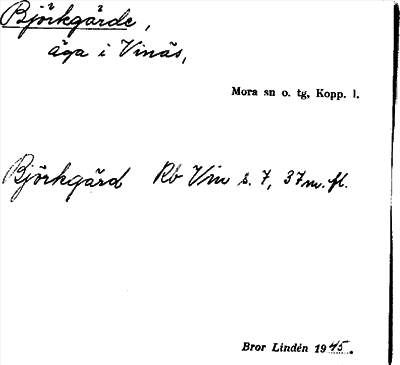 Björkgärde,
äga i Vinäs,
Mora sn o. tg, Kopp. l.
Björkgärd Rb Vin s. 7, 37 m. fl.
Bror Lindén 1945.